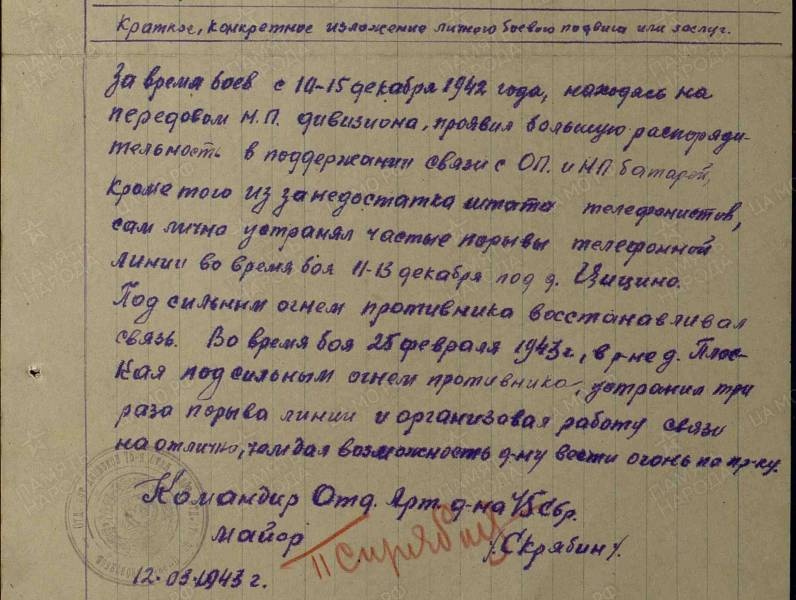 Краткое, конкретное изложение личного боевого подвига или заслуг.
За время боев с 10-15 декабря 1942 года, находясь на
передовом Н.П. дивизиона, проявил большую распоряди-
тельность в поддержании связи с ОП. и НП батарей,
Кроме того из за недостатка штата телефонистов,
сам лично устранял частые порывы телефонной
линии во время боя 11-13 декабря под д. Цицино.
Под сильным огнем противника восстанавливал
связь. Во время боя 25 февраля 1943 г., в р-не д. Плос-
кая под сильным огнем противника, устранил три
раза порыва линии и организовал работу связи
на отлично, чем дал возможность д-ну вести огонь по пр-ку.
Командир Отд. Арт. д-на 75 сбр.
майор /Скрябин/.
12-03-1943 г.